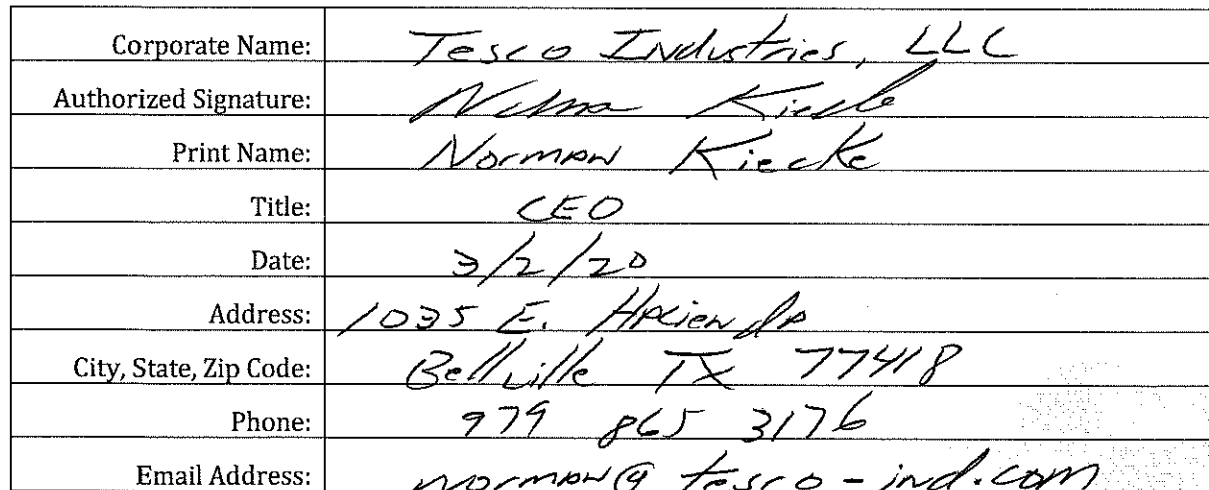 Corporate Name: Tesco Industries, LLC
Authorized Signature: Norman Kiecke
Print Name: Norman Kiecke
Title: CEO
Date: 3/2/20
Address: 1035 E. Hacienda
City, State, Zip Code: Bellville TX 77418
Phone: 979 865 3176
Email Address: norman@tesco-ind.com